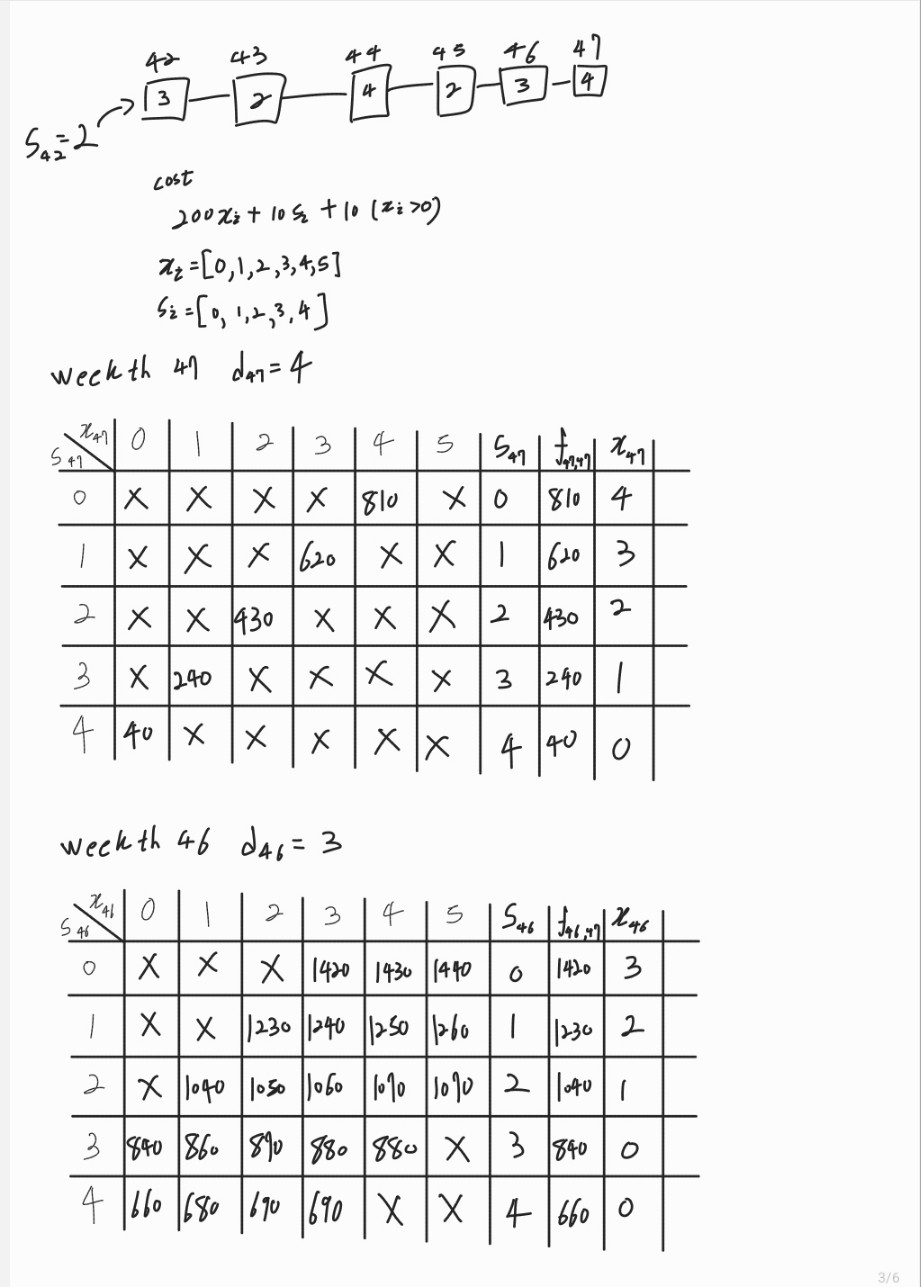 42 43 44 45 46 47
3 2 4 2 3 4
S₄₂=2
cost
200xᵢ + 10Sᵢ + 10 (xᵢ>0)
xᵢ=[0,1,2,3,4,5]
Sᵢ=[0,1,2,3,4]
week th 47 d₄₇=4
S₄₇ x₄₇ 0 1 2 3 4 5 S₄₇ f₄₇,₄₇ x₄₇
0 X X X X 810 X 0 810 4
1 X X X 620 X X 1 620 3
2 X X 430 X X X 2 430 2
3 X 240 X X X X 3 240 1
4 40 X X X X X 4 40 0
week th 46 d₄₆=3
S₄₆ x₄₆ 0 1 2 3 4 5 S₄₆ f₄₆,₄₇ x₄₆
0 X X X 1420 1430 1440 0 1420 3
1 X X 1230 1240 1250 1260 1 1230 2
2 X 1040 1050 1060 1070 1070 2 1040 1
3 840 860 870 880 880 X 3 840 0
4 660 680 690 690 X X 4 660 0
3/6